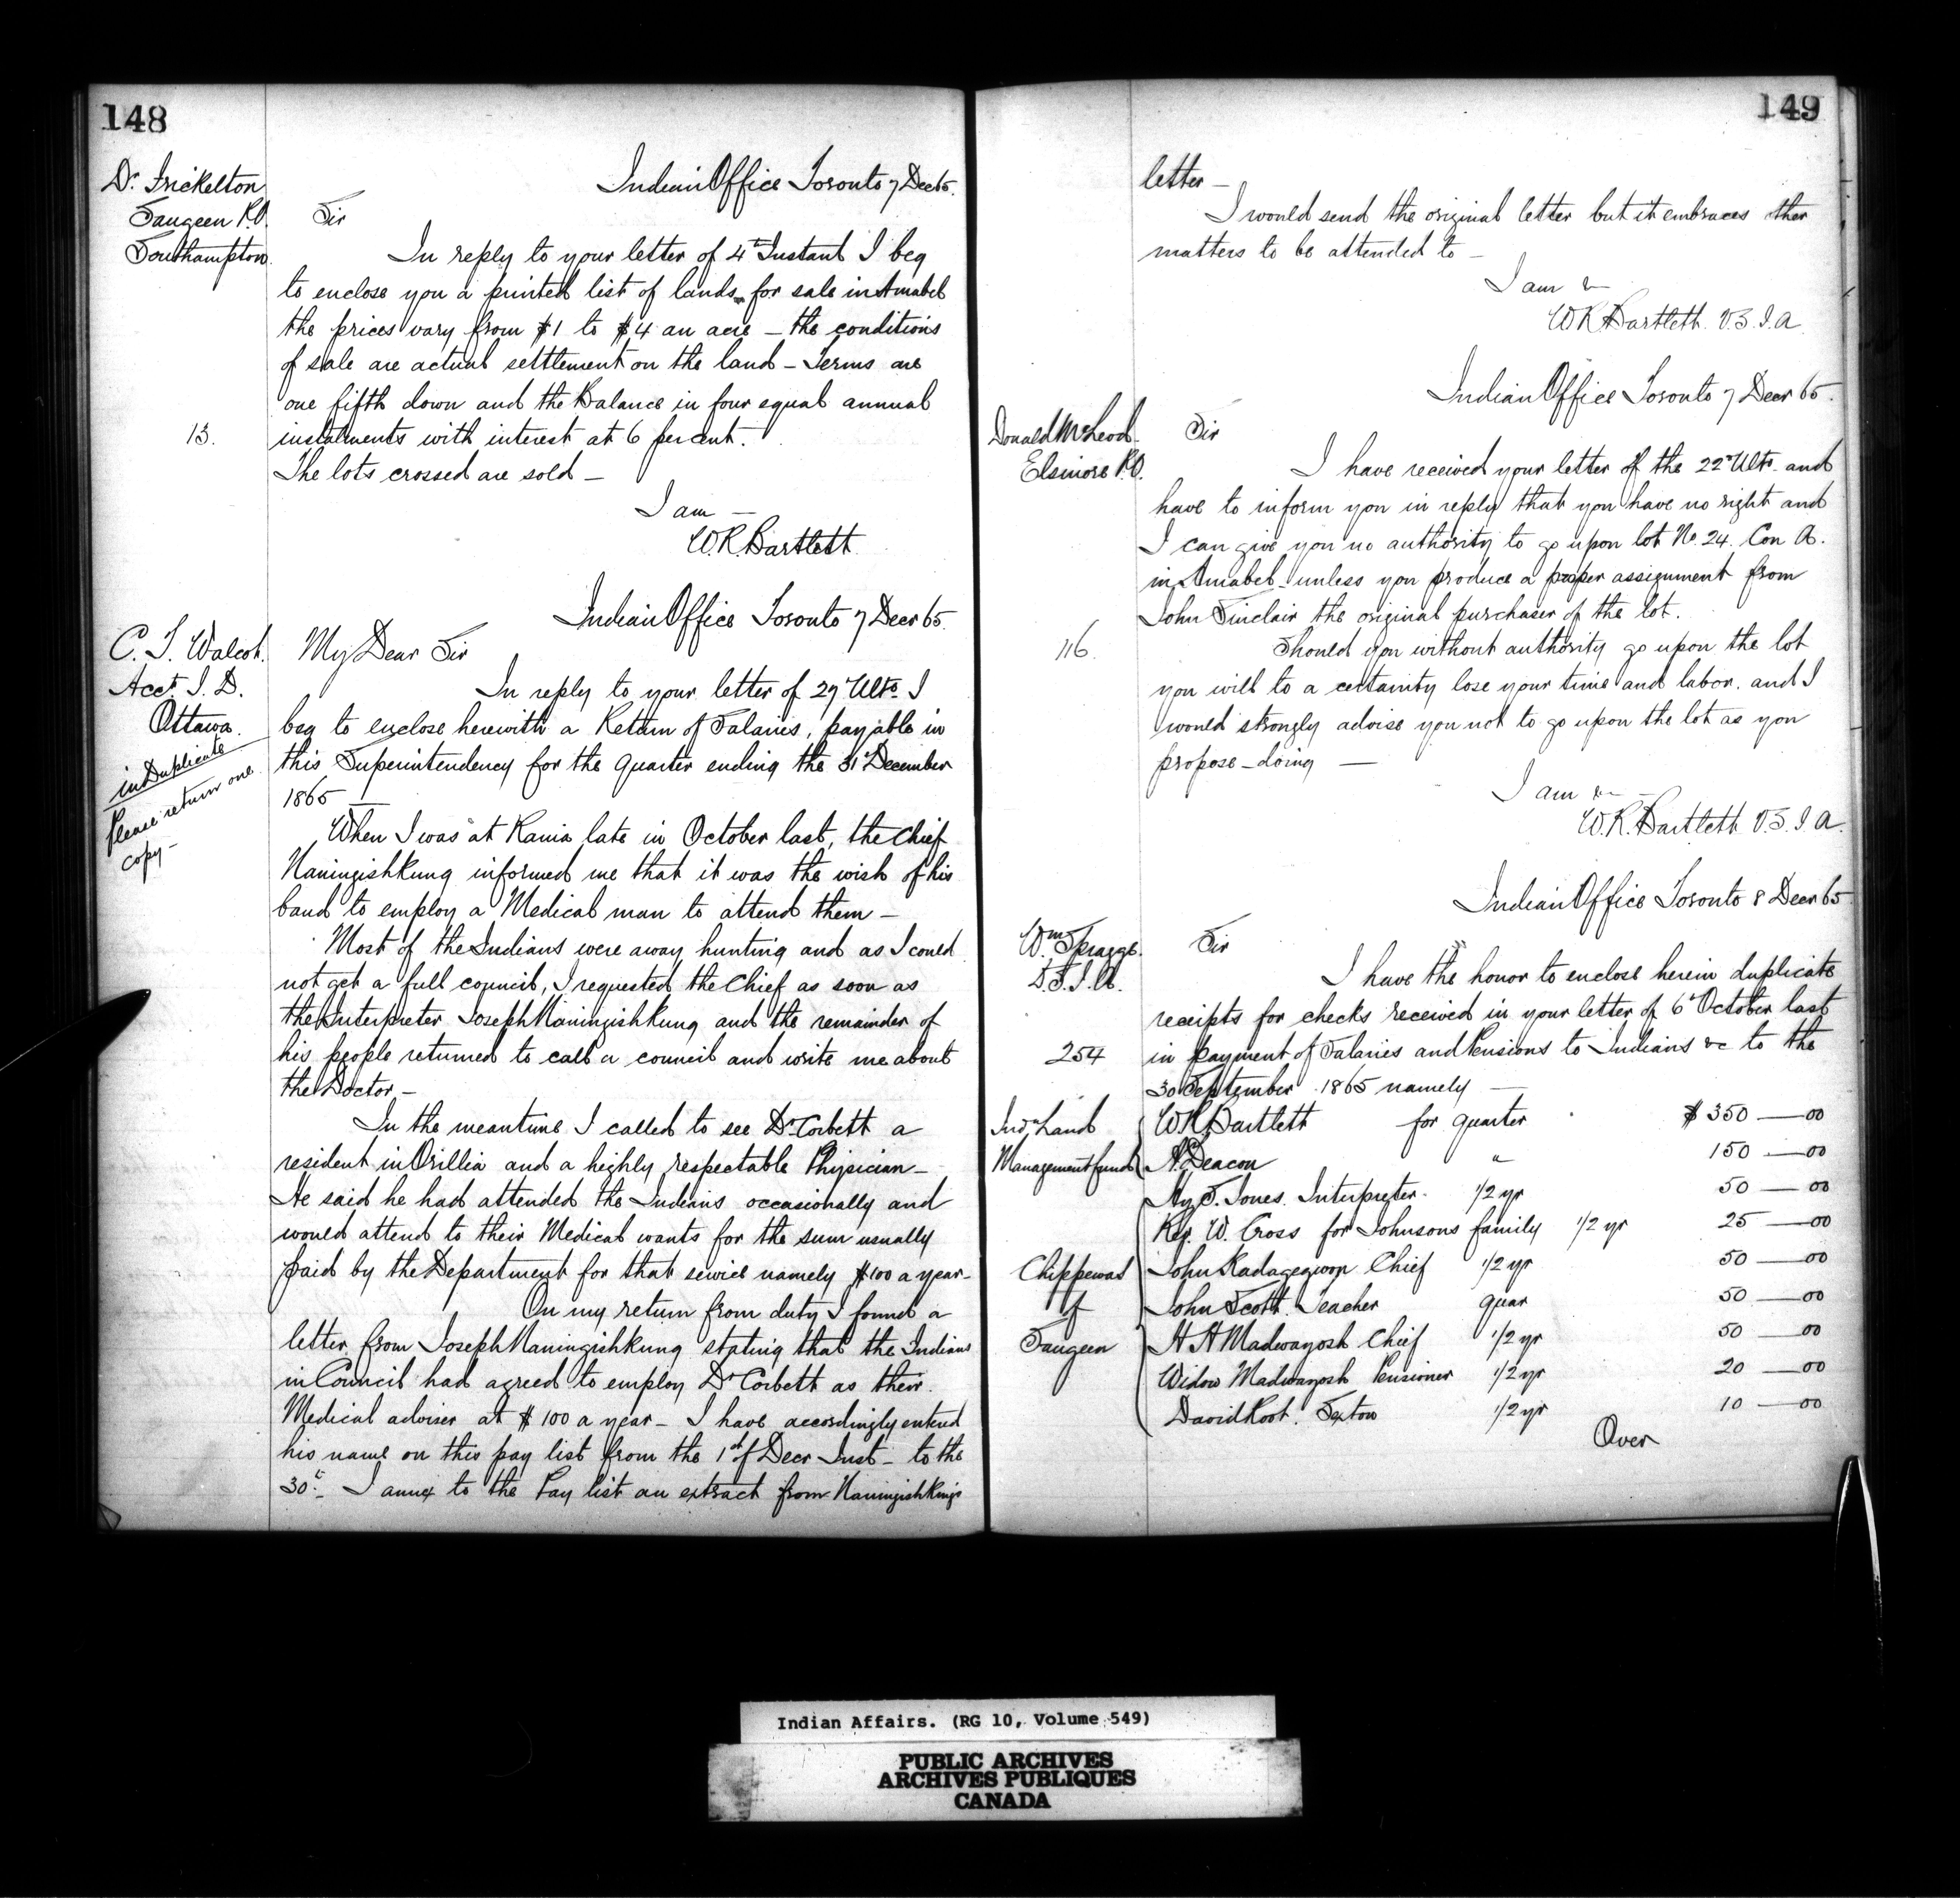 148
Dr Frickelton
Saugeen P.O.
Southampton
Indian Office Toronto 7 Dec 65.
Sir
In reply to your letter of 4th Instant I beg
to enclose you a printed list of lands for sale in Amabel
the prices vary from $1 to $4 an acre — the conditions
of sale are actual settlement on the land — Terms are
one fifth down and the Balance in four equal annual
13.
instalments with interest at 6 per cent.
The lots crossed are sold —
I am —
W.R. Bartlett
Indian Office Toronto 7 Decr 65.
C. T. Walcot.
Acct. I. D.
Ottawa.
in Duplicate
Please return one
copy —
My Dear Sir
In reply to your letter of 29th Ulto. I
beg to enclose herewith a Return of Salaries, payable in
this Superintendency for the quarter ending the 31st December
1865 —
When I was at Rama late in October last, the Chief
Naningishkung informed me that it was the wish of his
band to employ a Medical man to attend them —
Most of the Indians were away hunting and as I could
not get a full council, I requested the Chief as soon as
the Interpreter Joseph Naningishkung and the remainder of
his people returned to call a council and write me about
the Doctor —
In the meantime I called to see Dr Corbett a
resident in Orillia and a highly respectable Physician —
He said he had attended the Indians occasionally and
would attend to their Medical wants for the sum usually
paid by the Department for that service namely $100 a year —
On my return from duty I found a
letter from Joseph Naningishkung stating that the Indians
in Council had agreed to employ Dr Corbett as their
Medical adviser at $100 a year — I have accordingly entered
his name on this pay list from the 1st of Decr Inst — to the
30th — I annex to the Pay list an extract from Naningishkungs
149
letter —
I would send the original letter but it embraces other
matters to be attended to —
I am &
W R Bartlett V.S.I.A.
Indian Office Toronto 7 Decr 65.
Donald McLeod.
Elsinore P.O.
Sir
I have received your letter of the 22nd Ulto. and
have to inform you in reply that you have no right and
I can give you no authority to go upon lot No. 24. Con A.
in Amabel — unless you produce a proper assignment from
John Sinclair the original purchaser of the lot.
116.
Should you without authority go upon the lot
you will to a certainty lose your time and labor. and I
would strongly advise you not to go upon the lot as you
propose — doing —
I am &c —
W.R. Bartlett V.S.I.A.
Indian Office Toronto 8 Decr 65
Wm Spragge.
D.S.I.A.
Sir
I have the honor to enclose herein duplicate
receipts for checks received in your letter of 6th October last
254
in payment of Salaries and Pensions to Indians &c to the
30 September 1865 namely —
Indn Land
Management fund
W R Bartlett for quarter $350 — 00
A. Deacon " 150 — 00
Hy. T. Jones. Interpreter. 1/2 yr 50 — 00
W. Cross for Johnsons family 1/2 yr 25 — 00
Chippewas
of
Saugeen
John Kadagegwon Chief 1/2 yr 50 — 00
John Scott. Teacher quar 50 — 00
H H Madwayosh Chief 1/2 yr 50 — 00
Widow Madwayosh Pensioner 1/2 yr 20 — 00
David Root. Sexton 1/2 yr 10 — 00
Over
Indian Affairs. (RG 10, Volume 549)
PUBLIC ARCHIVES
ARCHIVES PUBLIQUES
CANADA